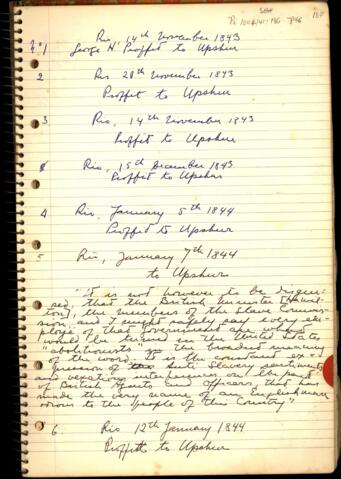 Rio 14th November 1843
No. 1 George H. Proffit to Upshur
2 Rio 28th November 1843
Proffit to Upshur
3 Rio, 14th November 1843
Proffit to Upshur
Rio, 15th December 1843
Proffit to Upshur
4 Rio, January 5th 1844
Proffit to Upshur
5 Rio, January 7th 1844
to Upshur
"It is not however to be disguised,
that the British Minister [Hamilton],
the members of the Slave Commission,
and I might safely say every employe
of that Government are what
would be termed in the United States
"abolitionists" in the broadest meaning
of the word. It is the constant expression
of anti slavery sentiments
and vexatious interference on the part
of British agents and officers, that has
made the very name of an Englishman
odious to the people of this Country"
6. Rio 12th January 1844
Proffit to Upshur